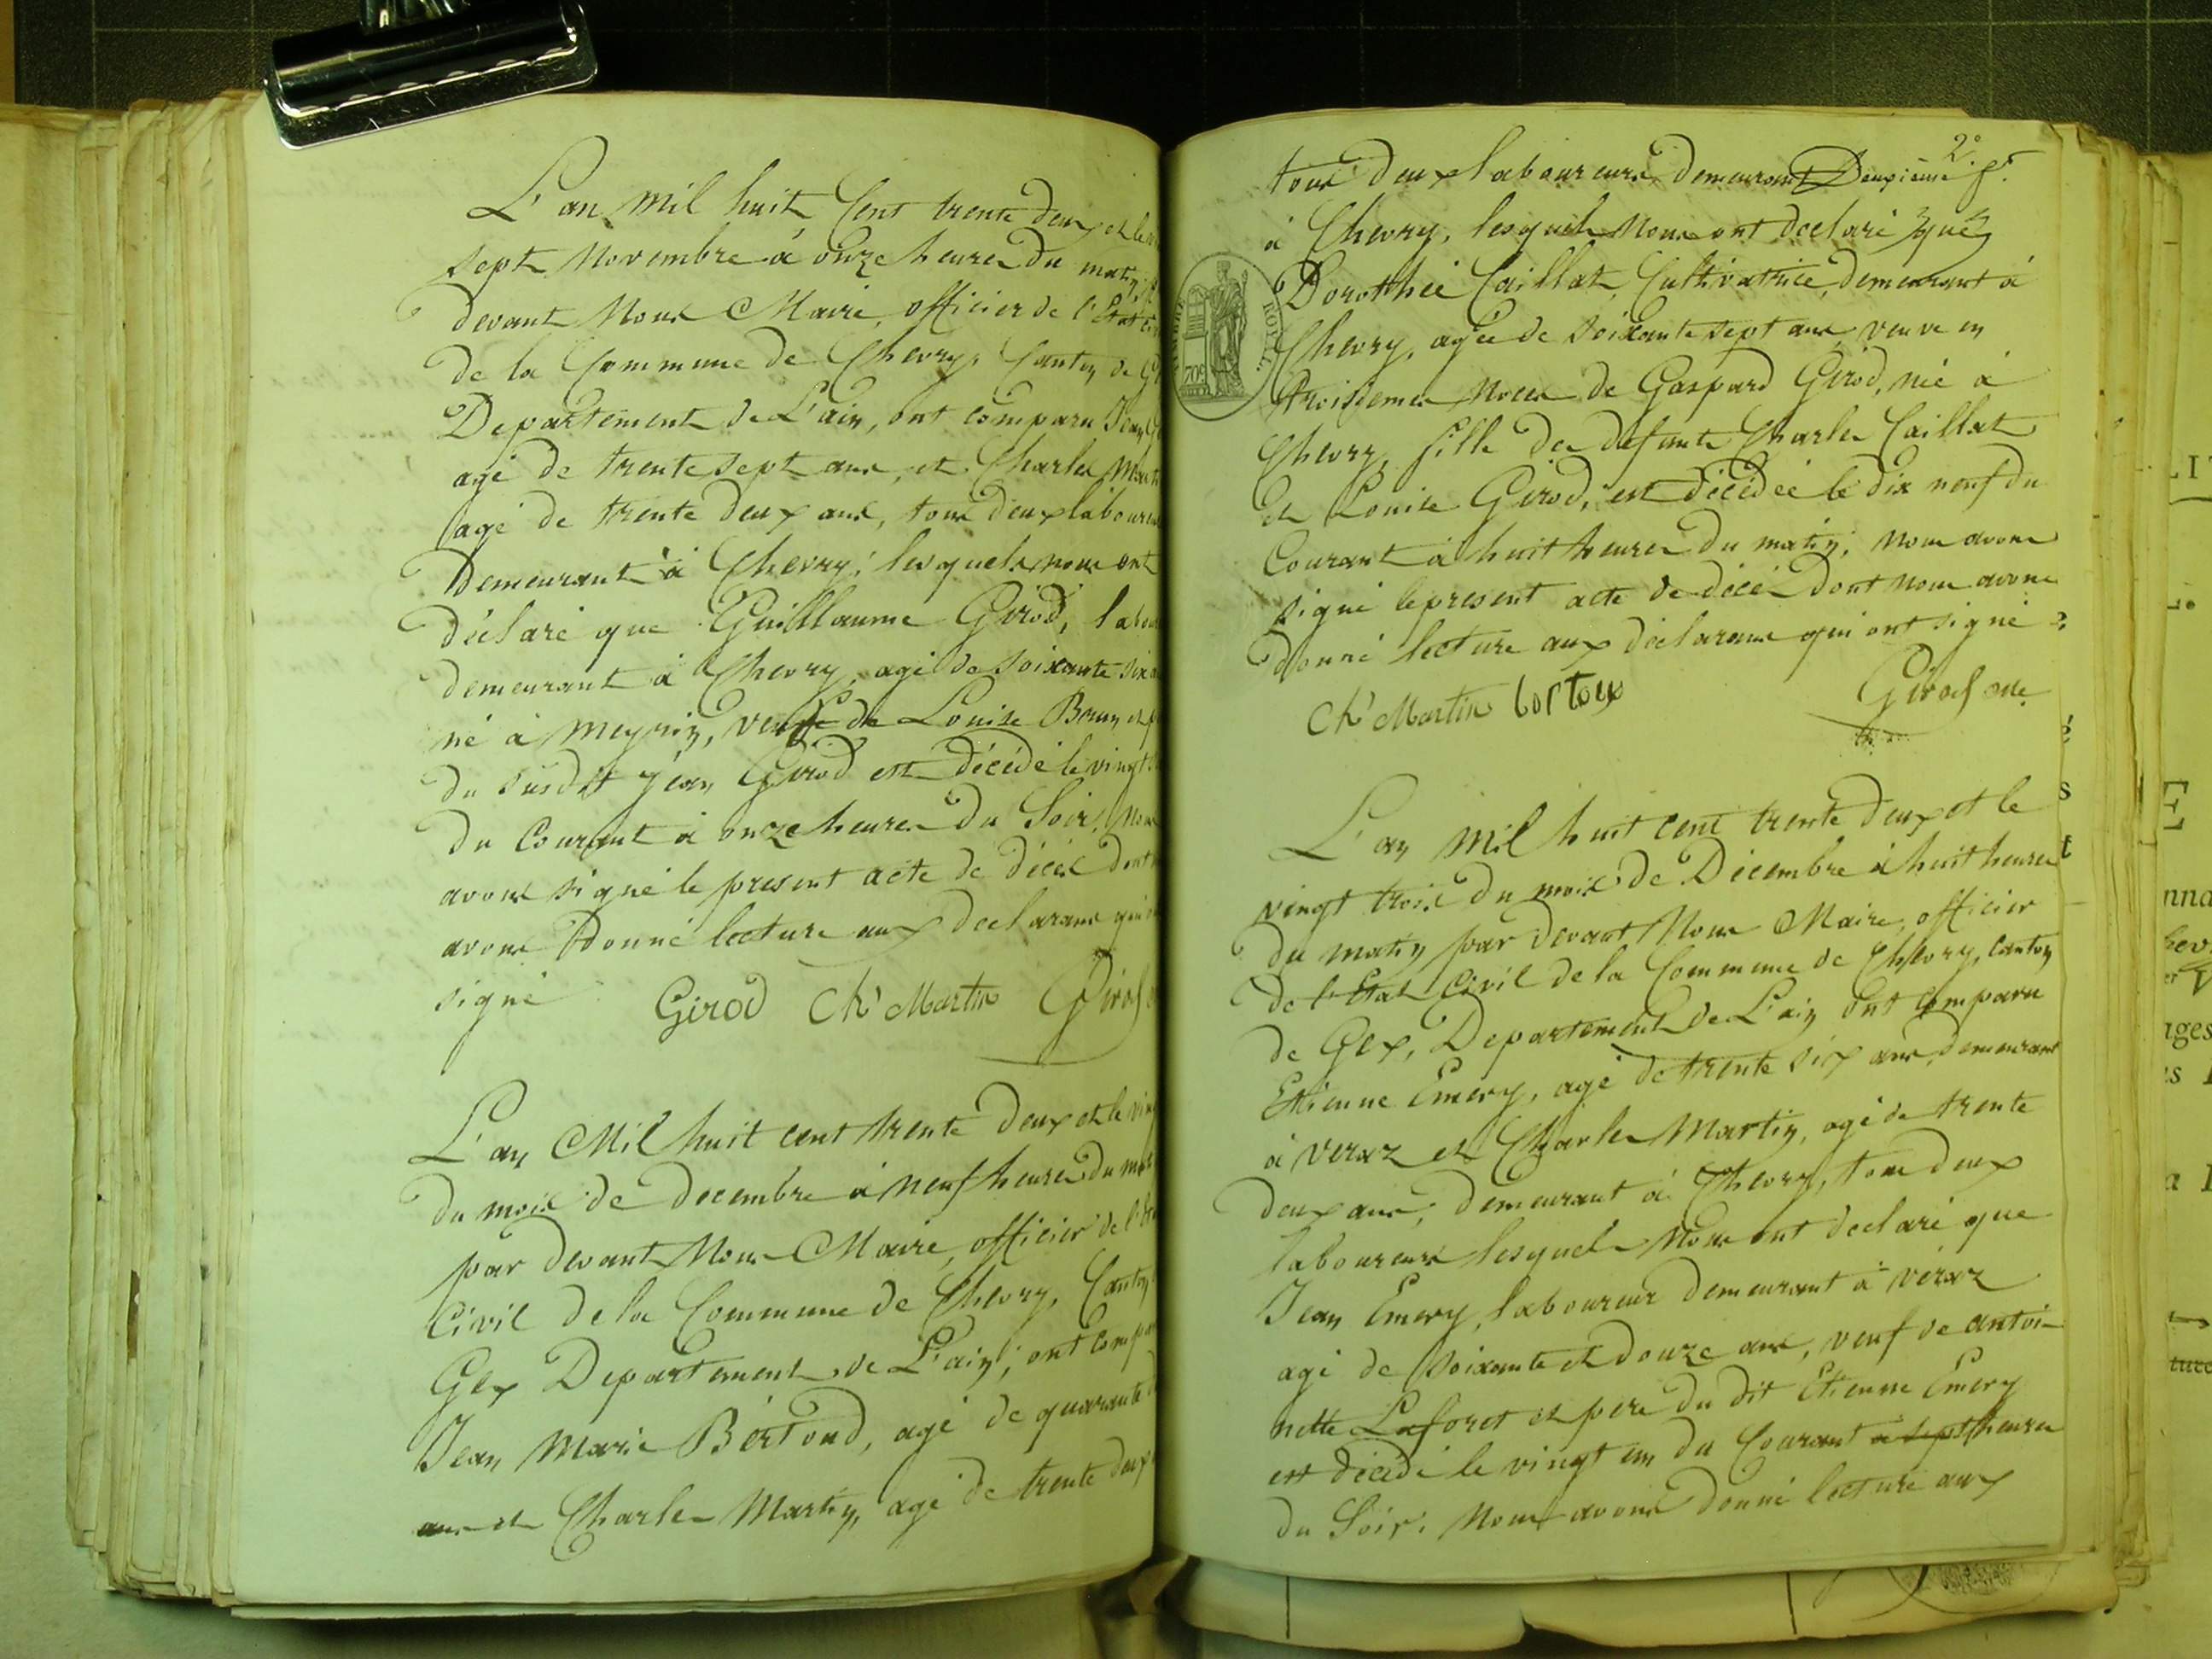 L'an mil huit Cent trente deux et le
sept Novembre à onze heures du matin
devant Nous Maire, officier de l'Etat
de la Commune de Chevry, Canton de
Departement de L'ain, ont comparu Jean
agé de trente sept ans, et Charles
agé de trente deux ans, tous deux
Demeurant à Chevry, lesquels nous ont
déclaré que Guillaume Girod,
demeurant à Chevry, agé de soixante six
né à meyrin, veuf de Louise et
du susdit jean Girod est décédé le vingt
du Courant à onze heures du Soir, Nous
avons signé le present acte de décès dont
avons Donné lecture aux declarans qui
signé Girod Ch Martin Girod
L'an Mil huit cent trente deux et le
du mois de decembre à neuf heures du
par devant Nous Maire, officier de
Civil de la Commune de Chevry, Canton
Gex Departement de L'ain, ont
Jean Marie Bertoud, agé de quarante
ans et Charles Martin, agé de trente deux
2e
tous deux laboureurs demeurant Deuxième ft
à Chevry, lesquels Nous ont declaré que
Dorothée Caillat, Cultivatrice, demeurant à
Chevry, agée de soixante sept ans, veuve en
troisiemes Noces de Gaspard Girod, née à
Chevry, fille de defunts Charles Caillat
et Louise Girod, est décédée le dix neuf du
Courant à huit heures du matin, nous avons
signé le present acte de décès dont nous avons
donné lecture aux déclarans qui ont signé
Ch Martin bortoux Girod
TIMBRE ROYAL
70c
L'an Mil huit cent trente deux et le
vingt trois du mois de Décembre à huit heures
du matin par devant Nous Maire, officier
de l'Etat Civil de la Commune de Chevry, Canton
de Gex, Departement de L'ain ont comparu
Etienne Emery, agé de trente six ans, demeurant
à veraz et Charles Martin, agé de trente
deux ans, demeurant à Chevry, tous deux
laboureurs lesquels Nous ont declaré que
Jean Emery, laboureur demeurant à véraz
agé de soixante et douze ans, veuf de antoi-
nette Laforet et pere du dit Etienne Emery
est décédé le vingt un du Courant à sept heures
du Soir. Nous avons donné lecture aux